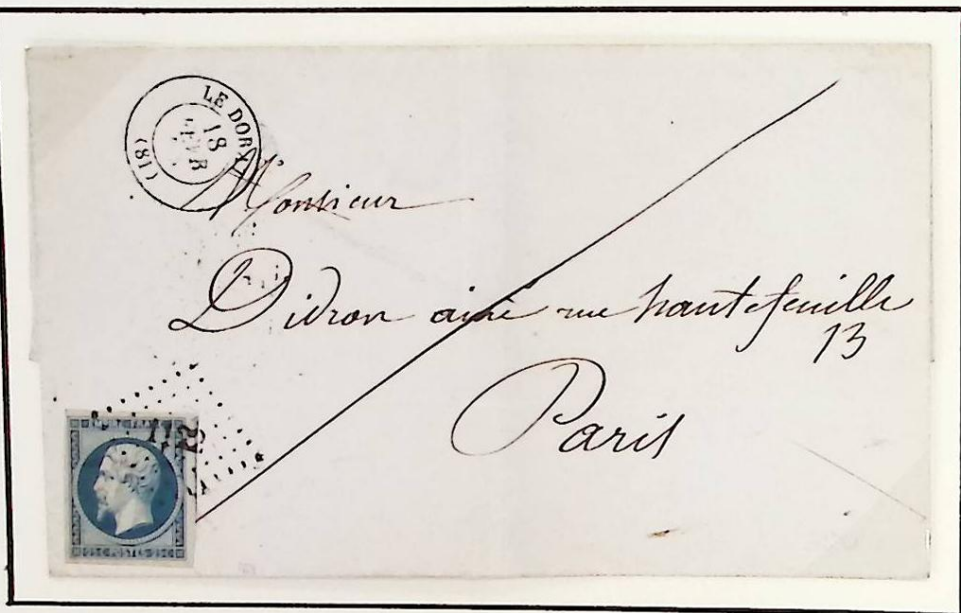 LE DORAT
18
FEVR
(81)
Monsieur
Didron ainé rue hautefeuille
13
Paris